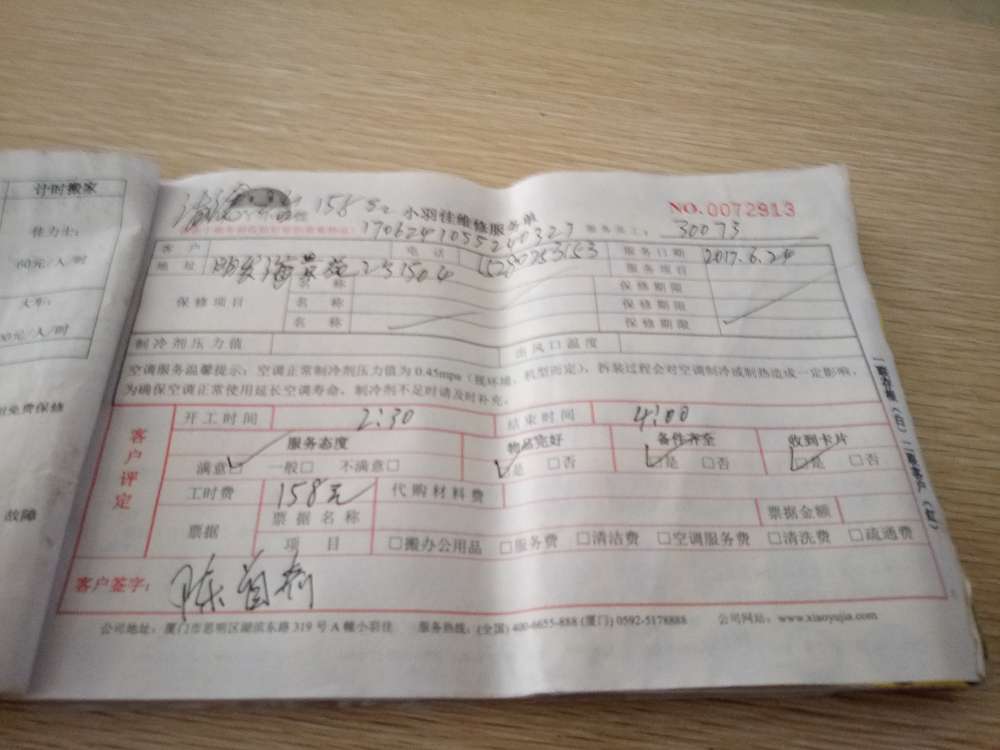 计时搬家
佳力士:
60元/人/时
大车:
00元/人/时
免费保修
故障
158
小羽佳维修服务单
NO.0072913
服务员工: 30073
客户 电话 15290753153 服务日期 2017.6.24
地址 231504 服务项目
保修项目 名称 保修期限
名称 保修期限
名称 保修期限
制冷剂压力值 出风口温度
空调服务温馨提示:空调正常制冷剂压力值为0.45mpa(视环境、机型而定),拆装过程会对空调制冷或制热造成一定影响,
为确保空调正常使用延长空调寿命,制冷剂不足时请及时补充。
客户评定
开工时间 2:30 结束时间 4:00
服务态度 物品完好 备件齐全 收到卡片
满意□ 一般□ 不满意□ □是 □否 □是 □否 □是 □否
工时费 158元 代购材料费
票据 票据名称 票据金额
项目 □搬办公用品 □服务费 □清洁费 □空调服务费 □清洗费 □疏通费
客户签字: 陈
公司地址:厦门市思明区湖滨东路319号A幢小羽佳 服务热线:(全国)400-6655-888 (厦门)0592-5178888 公司网站:www.xiaoyujia.com